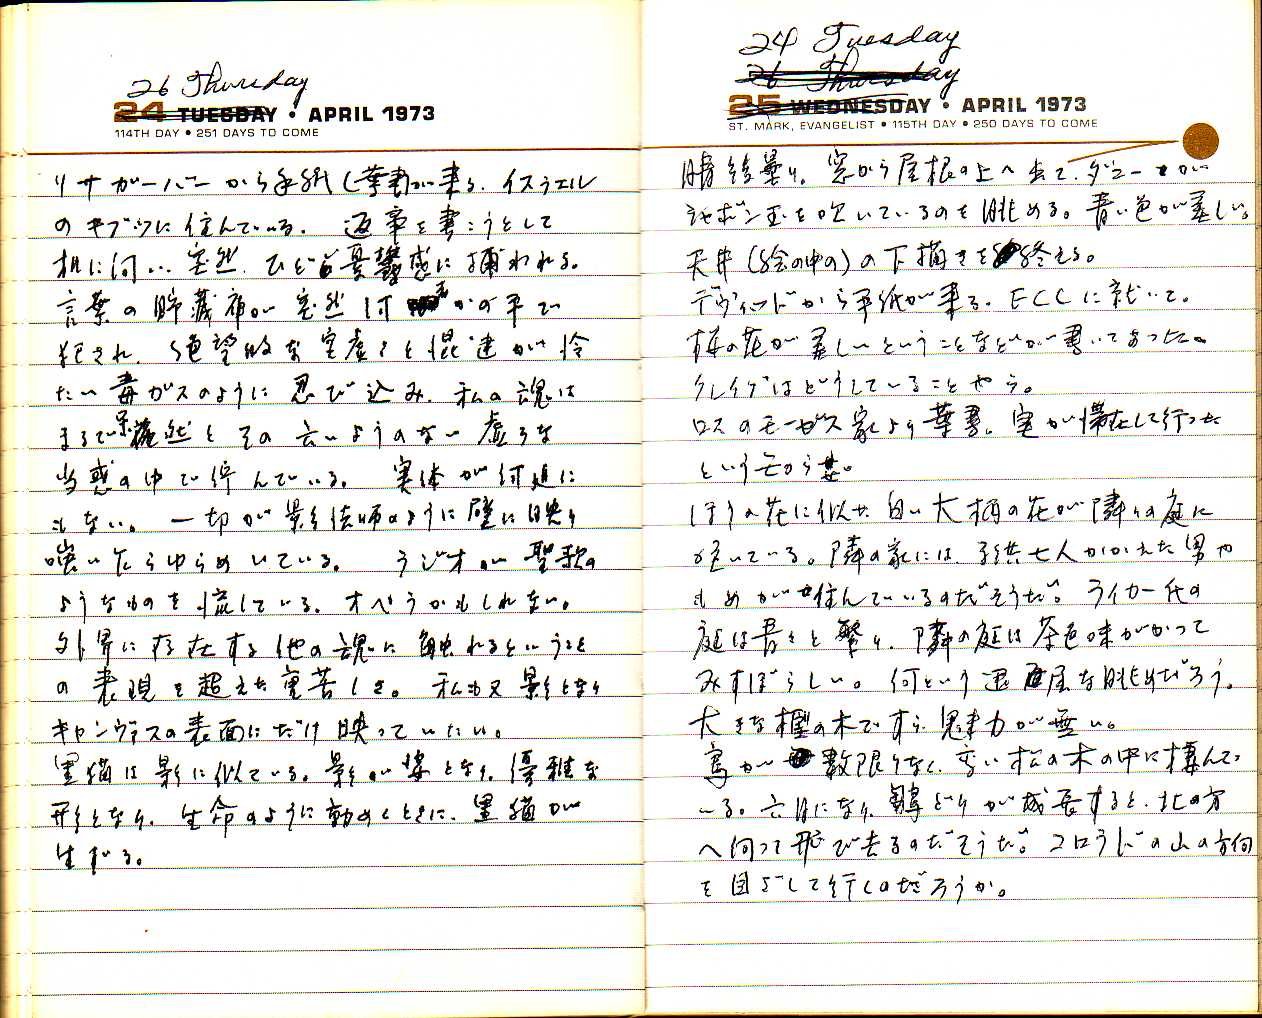 26 Thursday
24 TUESDAY • APRIL 1973
114TH DAY • 251 DAYS TO COME
リサ ガーバーから手紙(葉書)が来る。イスラエル
のキブツに住んでいる。 返事を書こうとして
机に向い、突然、ひどい憂鬱感に捕われる。
言葉の貯蔵庫が突然何者かの手で
犯され、絶望的な空虚さと混迷が冷
たい毒ガスのように忍び込み、私の魂は
まるで呆然とその云いようのない虚ろな
当惑の中で佇んでいる。 実体が何処に
もない。 一切が影法師のように壁に映り
嗤いたらゆらめいている。 ラジオが聖歌の
ようなものを流している。オペラかもしれない。
外界に存在する他の魂に触れるということ
の表現を超えた重苦しさ。 私も又影となり
キャンヴァスの表面にだけ映っていたい。
黒猫は影に似ている。影が姿となり、優雅な
形となり、生命のように動めくときに、黒猫が
生ずる。
24 Tuesday
26 Thursday
25 WEDNESDAY • APRIL 1973
ST. MARK, EVANGELIST • 115TH DAY • 250 DAYS TO COME
晴後曇り。窓から屋根の上へ出て、ダニーが
シャボン玉を吹いているのを眺める。青い色が美しい。
天井(絵の中の)の下描きを終える。
デヴィッドから手紙が来る。ECCに就いて。
梅の花が美しいということなどが書いてあった。
クレイグはどうしていることやら。
ロスのモーガス家より葉書。実が滞在して行った
という
ほうの花に似た白い大柄の花が隣りの庭に
咲いている。隣の家には、子供七人かかえた男や
もめが住んでいるのだそうだ。ライカー氏の
庭は青々と繁り、隣の庭は茶色味がかって
みすぼらしい。何という退屈な眺めだろう。
大きな樫の木ですら魅力が無い。
鳥が数限りなく、高い松の木の中に棲んで
いる。六月になり、親どりが成長すると、北の方
へ向って飛び去るのだそうだ。コロラドの山の方向
を目ざして行くのだろうか。